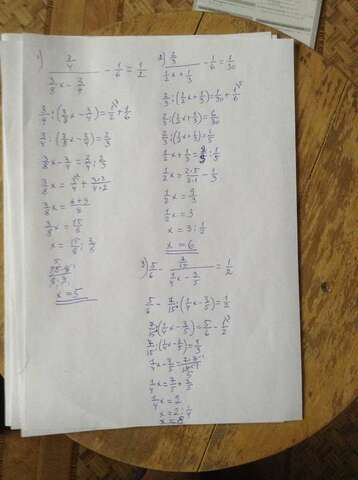 1) \frac{\frac{3}{4}}{\frac{3}{8}x - \frac{3}{4}} - \frac{1}{6} = \frac{1}{2}
\frac{3}{4} : (\frac{3}{8}x - \frac{3}{4}) = \frac{1}{2} + \frac{1}{6}
\frac{3}{4} : (\frac{3}{8}x - \frac{3}{4}) = \frac{2}{3}
\frac{3}{8}x - \frac{3}{4} = \frac{3}{4} : \frac{2}{3}
\frac{3}{8}x =
\frac{3}{8}x =
\frac{3}{8}x = \frac{15}{8}
x = \frac{15}{8} : \frac{3}{8}
x = 5
2) \frac{\frac{2}{3}}{\frac{1}{2}x + \frac{1}{3}} - \frac{1}{6} = \frac{1}{30}
\frac{2}{3} : (\frac{1}{2}x + \frac{1}{3}) = \frac{1}{30} + \frac{1}{6}
\frac{2}{3} : (\frac{1}{2}x + \frac{1}{3}) = \frac{6}{30}
\frac{2}{3} : (\frac{1}{2}x + \frac{1}{3}) = \frac{1}{5}
\frac{1}{2}x + \frac{1}{3} = \frac{2}{3} : \frac{1}{5}
\frac{1}{2}x = \frac{2 \cdot 5}{3 \cdot 1} - \frac{1}{3}
\frac{1}{2}x = \frac{9}{3}
\frac{1}{2}x = 3
x = 3 : \frac{1}{2}
x = 6
3) \frac{5}{6} - \frac{\frac{7}{15}}{\frac{1}{4}x - \frac{3}{5}} = \frac{1}{2}
\frac{5}{6} - \frac{7}{15} : (\frac{1}{4}x - \frac{3}{5}) = \frac{1}{2}
\frac{7}{15} : (\frac{1}{4}x - \frac{3}{5}) = \frac{5}{6} - \frac{1}{2}
\frac{7}{15} : (\frac{1}{4}x - \frac{3}{5}) = \frac{1}{3}
\frac{1}{4}x - \frac{3}{5} =
\frac{1}{4}x = \frac{7}{5} + \frac{3}{5}
\frac{1}{4}x = 2
x = 2 : \frac{1}{4}
x = 8